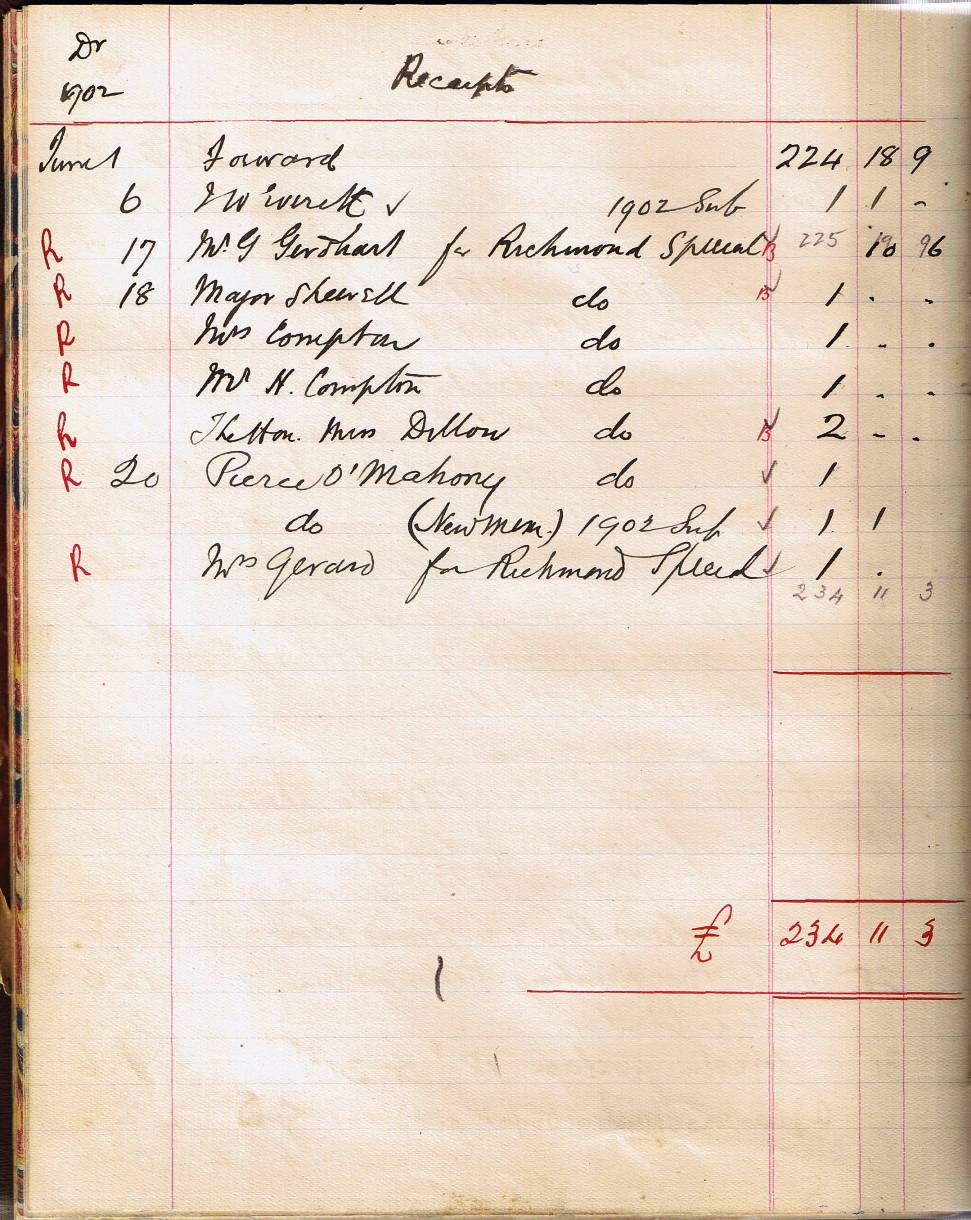 Dr
1902 Receipts
June 1 Forward 224 18 9
6 J W Everett ✓ 1902 Sub 1 1 -
R 17 Mr G Gerdhart for Richmond Special B ✓ 225 10 6
R 18 Major Shewell do B ✓ 1 . .
R Mrs Compton do 1 . .
R Mr H. Compton do 1 . .
R The Hon. Miss Dillon do B ✓ 2 - .
R 20 Pierce O'Mahony do ✓ 1
do (New Mem.) 1902 Sub ✓ 1 1
R Mrs Gerard for Richmond Special ✓ 1 .
234 11 3
£ 234 11 3